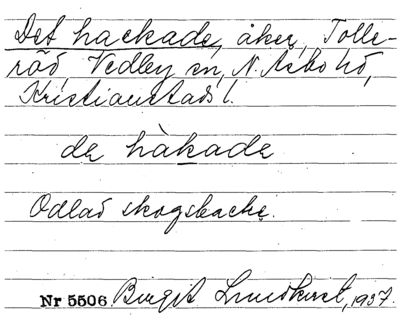 Det hackade, åker, Tolle-
röd, Vedby sn, N. Åsbo hd,
Kristianstads l.
dę hàkadę
Odlad skogsbacke.
Nr 5506 Birgit Lundkvist, 1937.